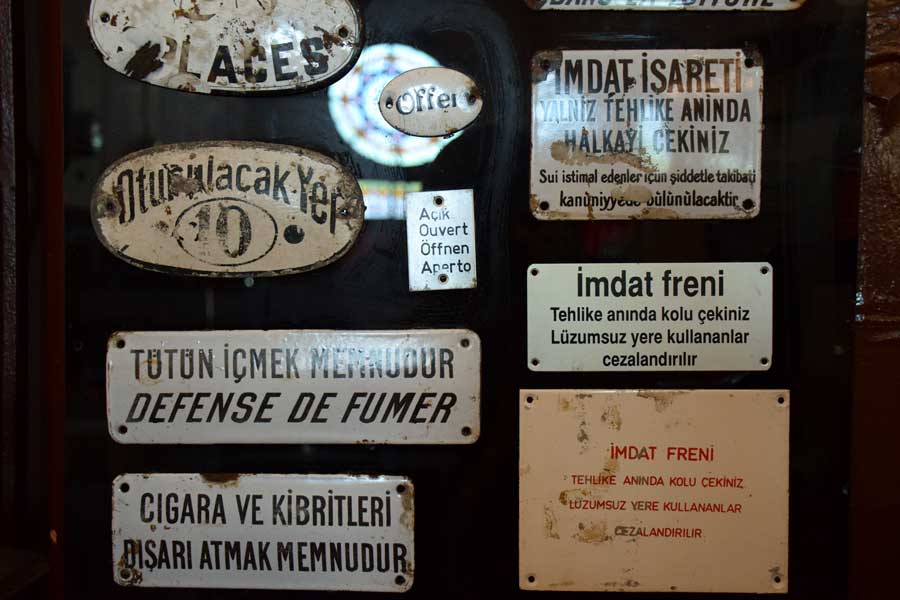 PLACES
Offen
Oturulacak Yer
10
Açık
Ouvert
Öffnen
Aperto
TÜTÜN İÇMEK MEMNUDUR
DEFENSE DE FUMER
CIGARA VE KİBRİTLERİ
DIŞARI ATMAK MEMNUDUR
İMDAT İŞARETİ
YALNIZ TEHLİKE ANINDA
HALKAYI ÇEKİNİZ
Sui istimal edenler için şiddetle takibatı
kanuniyyede bulunulacaktır
İmdat freni
Tehlike anında kolu çekiniz
Lüzumsuz yere kullananlar
cezalandırılır
İMDAT FRENİ
TEHLİKE ANINDA KOLU ÇEKİNİZ
LÜZUMSUZ YERE KULLANANLAR
CEZALANDIRILIR